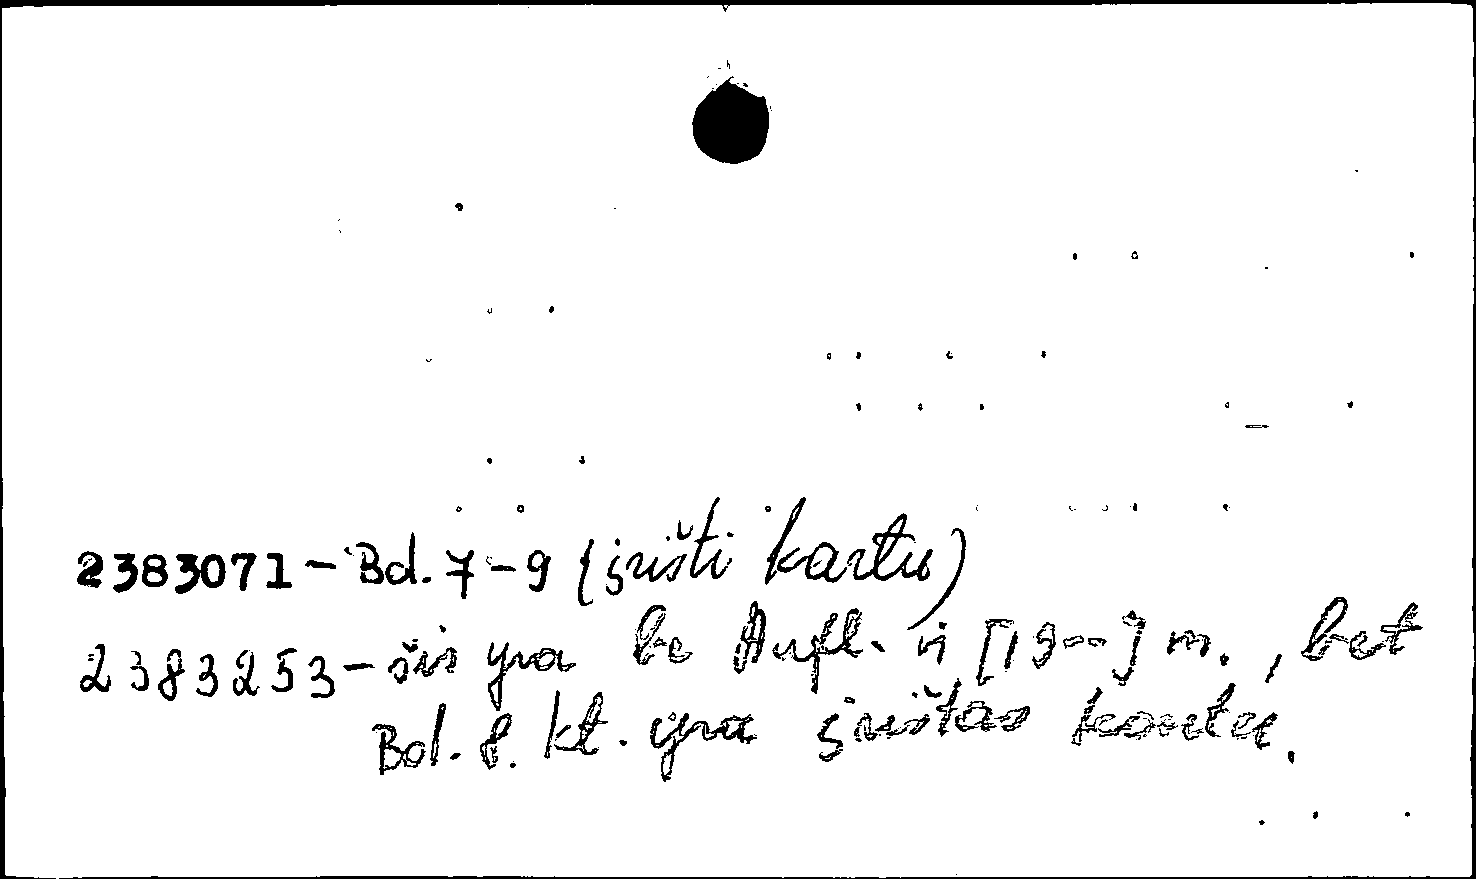 2383071 – Bd. 7-9 (įrišti kartu)
2383253 – šis yra be Aufl. ir [19--] m., bet
Bd. 8. kt. yra įrištas kartu.